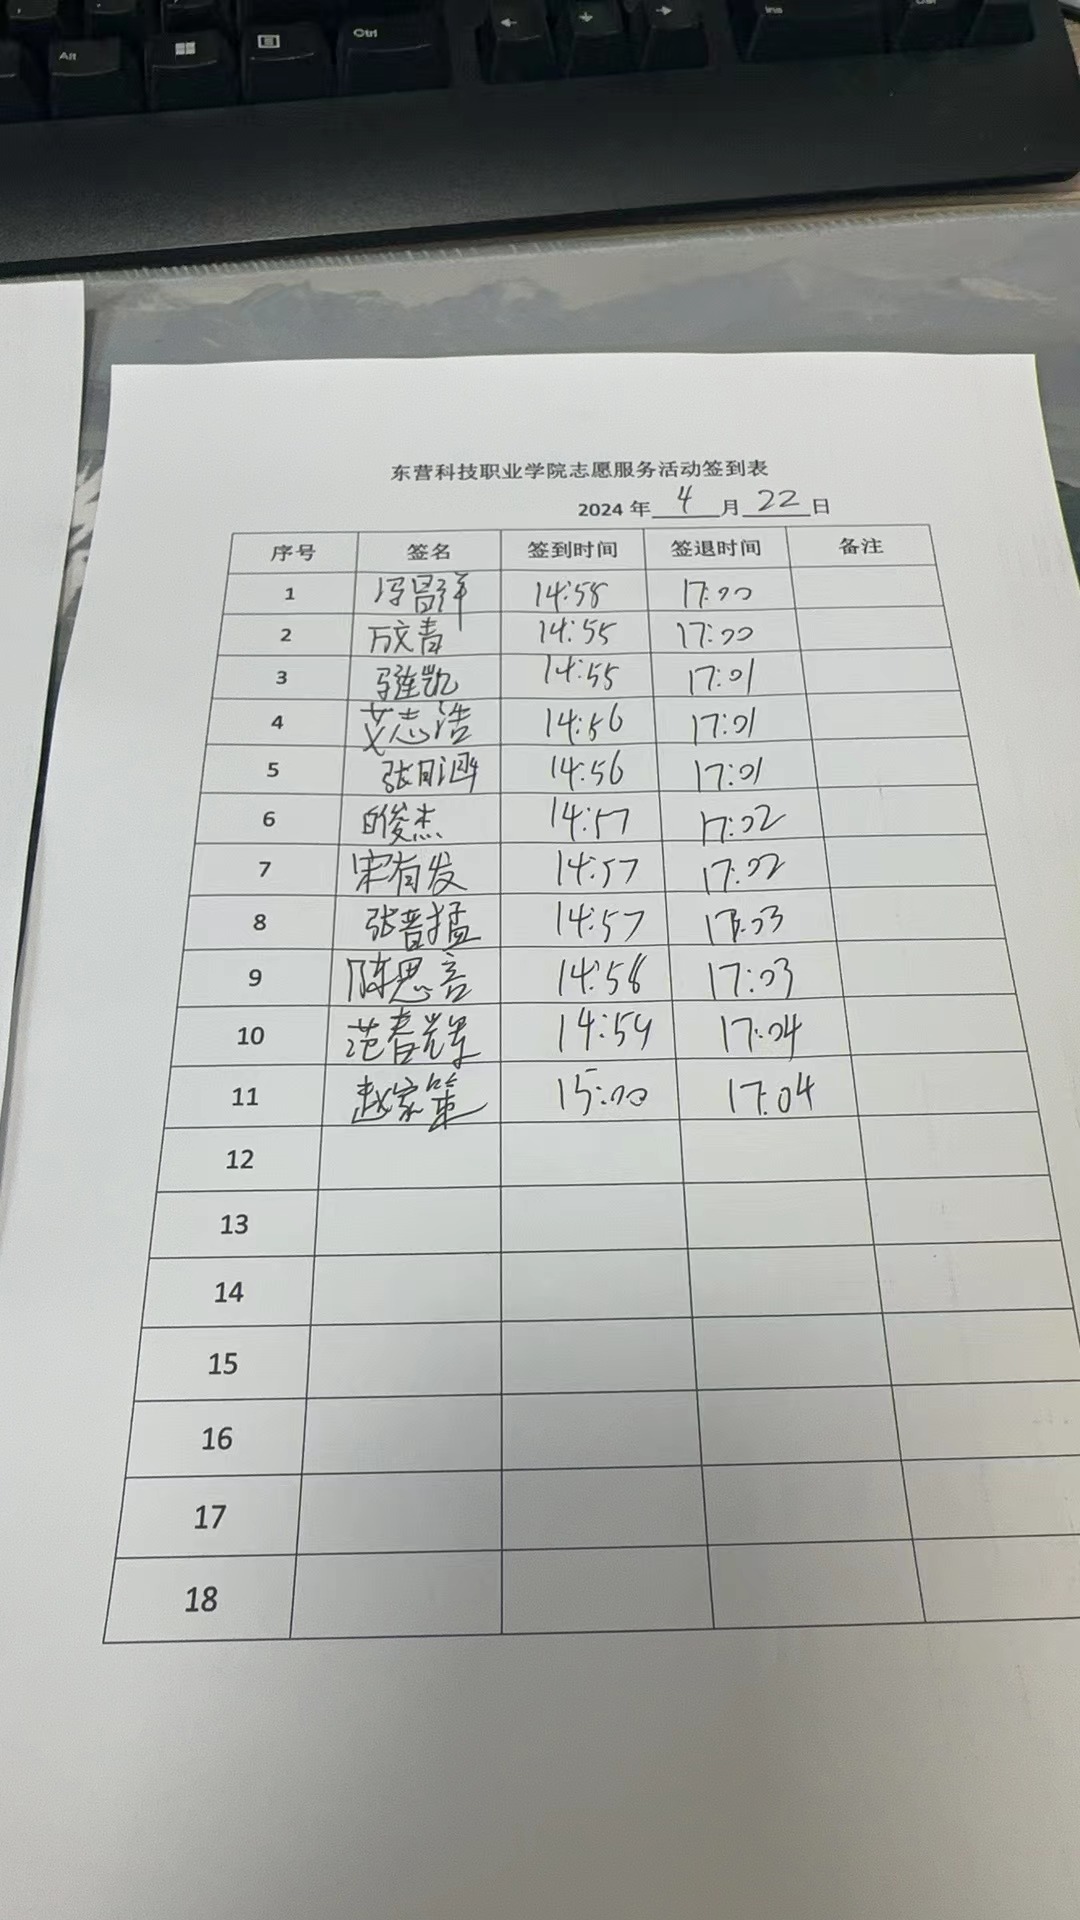 Alt
Ctrl
Ins
东营科技职业学院志愿服务活动签到表
2024 年 4 月 22 日
序号 签名 签到时间 签退时间 备注
1 冯昌祥 14:58 17:00
2 万文青 14:55 17:00
3 14:55 17:01
4 艾志浩 14:56 17:01
5 14:56 17:01
6 白俊杰 14:57 17:02
7 宋有发 14:57 17:02
8 张晋猛 14:57 17:03
9 陈思言 14:58 17:03
10 范春辉 14:59 17:04
11 赵家策 15:00 17:04
12
13
14
15
16
17
18